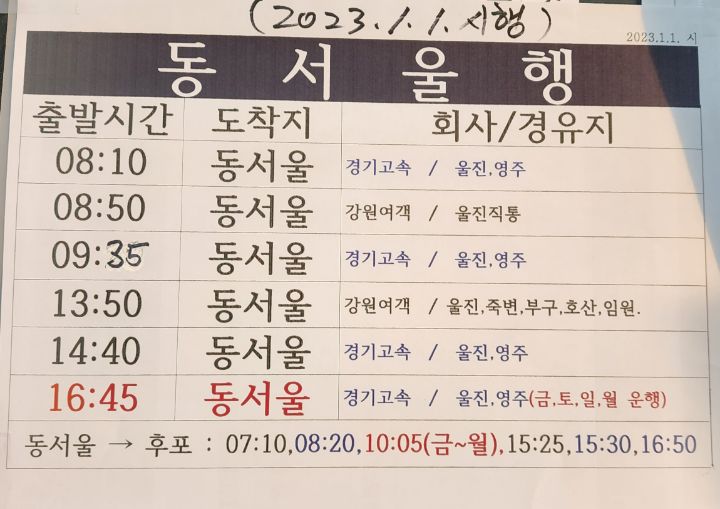 (2023.1.1.시행)
2023.1.1. 시
동 서 울 행
출발시간 도착지 회사/경유지
08:10 동서울 경기고속 / 울진,영주
08:50 동서울 강원여객 / 울진직통
09:35 동서울 경기고속 / 울진,영주
13:50 동서울 강원여객 / 울진,죽변,부구,호산,임원.
14:40 동서울 경기고속 / 울진,영주
16:45 동서울 경기고속 / 울진,영주(금,토,일,월 운행)
동서울 → 후포 : 07:10,08:20,10:05(금~월),15:25,15:30,16:50